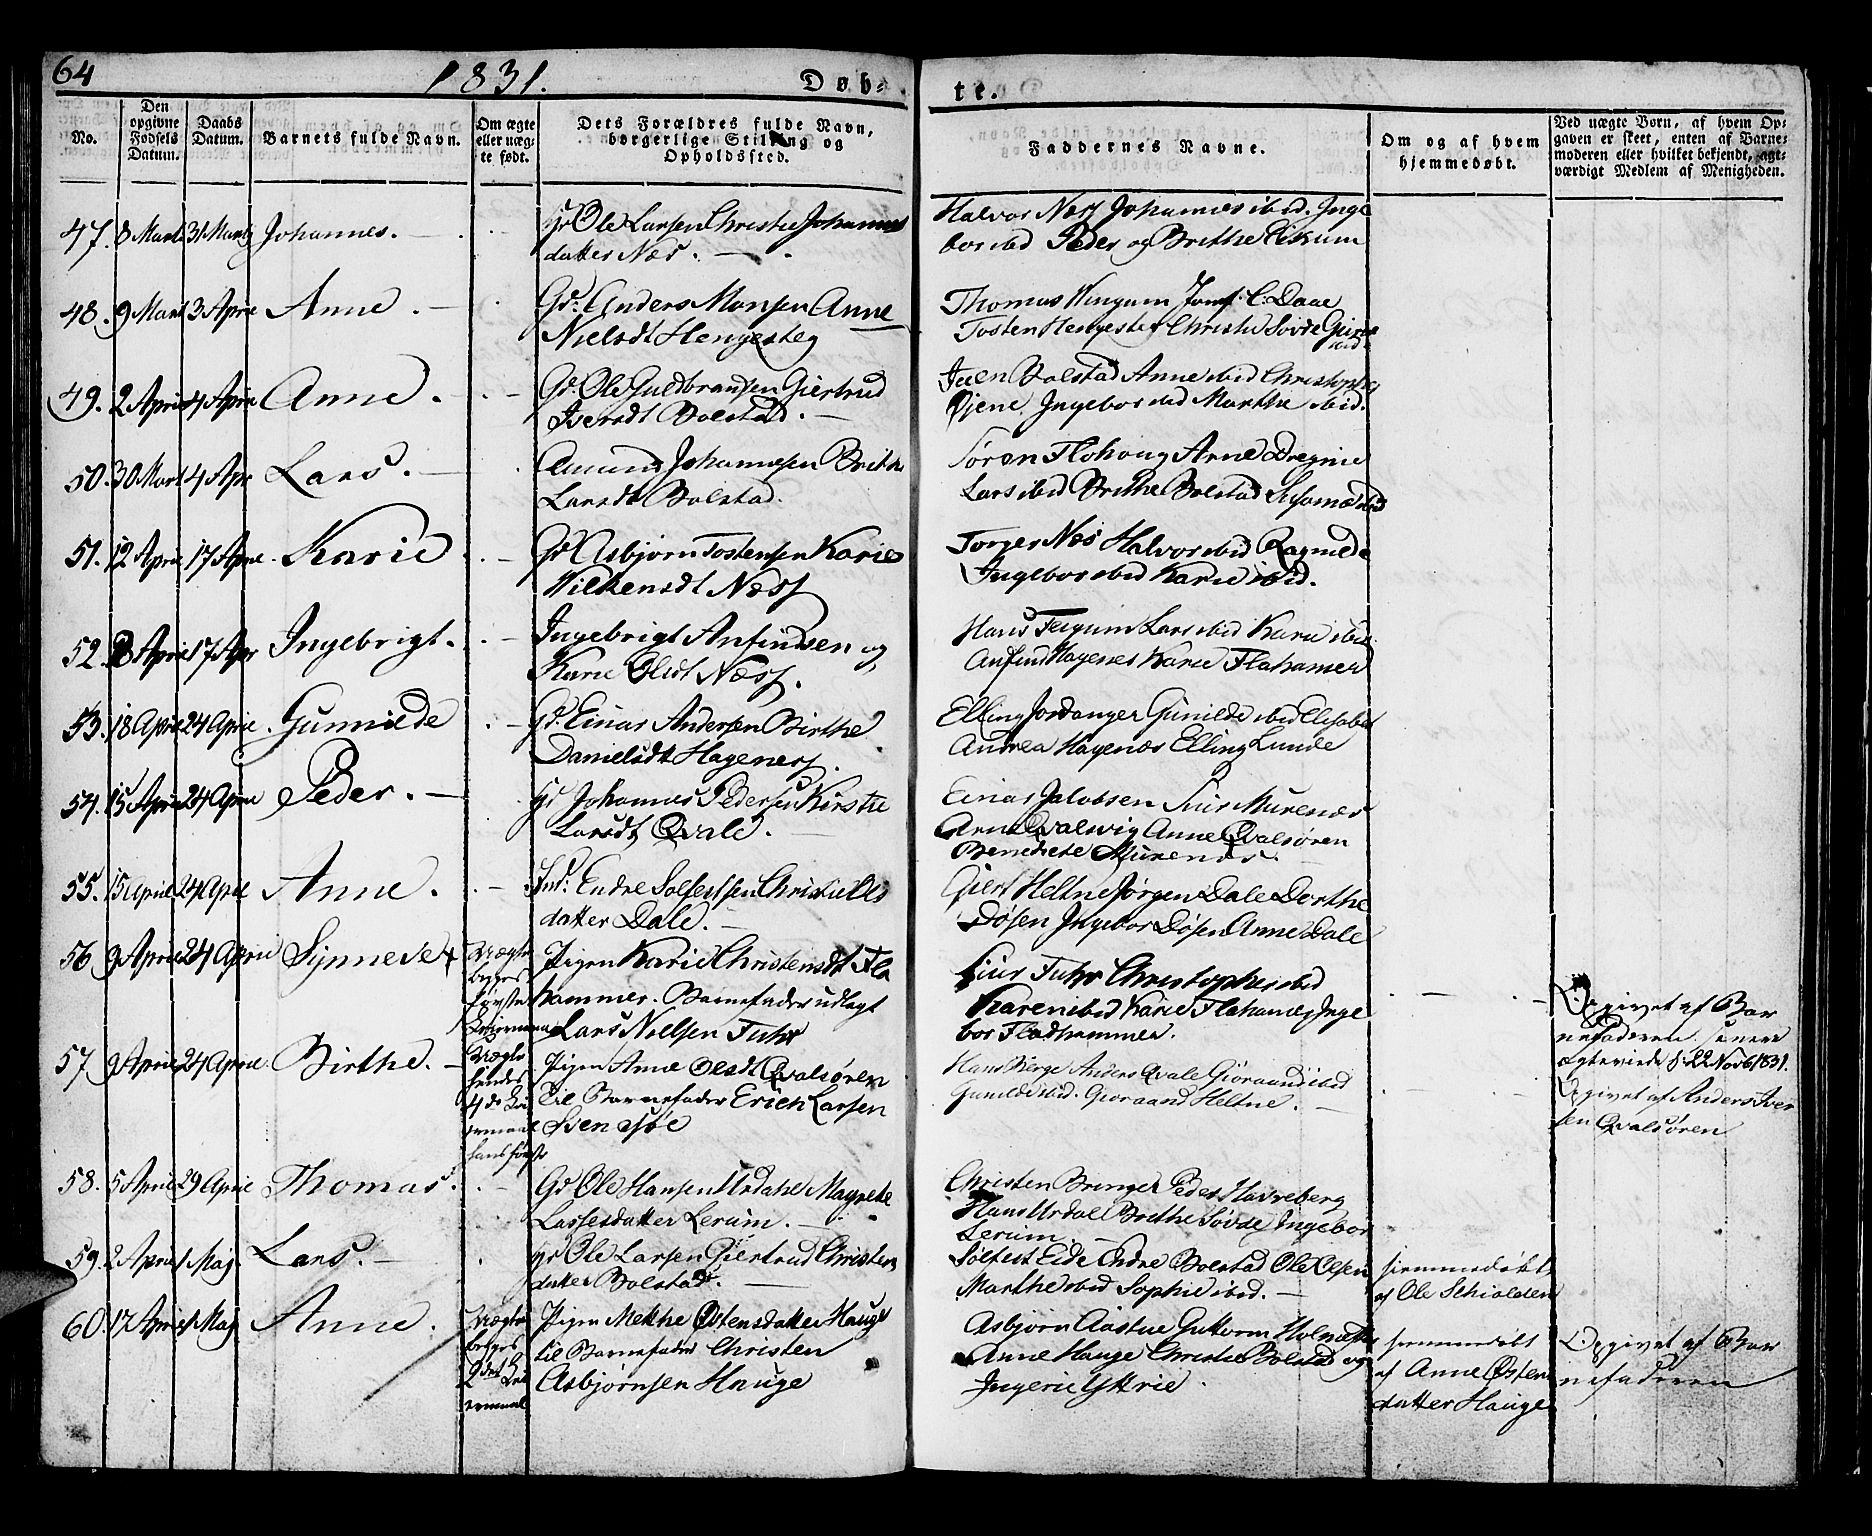 64
1831.
Døb-
te.
No.
Den opgivne Fødsels Datum.
Daabs Datum.
Barnets fulde Navn.
Om ægte eller uæg- te født.
Dets Forældres fulde Navn, borgerlige Stilling og Opholdssted.
Faddernes Navne.
Om og af hvem hjemmedøbt.
Ved uægte Børn, af hvem Op- gaven er skeet, enten af Barne- moderen eller hvilket bekjendt, agt- værdigt Medlem af Menigheden.
47. 8 Marti 31 Marti Johannes.
Gd Ole Larsen Christie Johannes
datter Næs.
Halvor Næss Johannes ibid. Inge
bor ibid Peder og Brithe Eikum
48. 9 Mart 3 April Anne.
Gd: Anders Monsen Anne
Nielsdt Hengesteg
Thomas Wingum Jomf. C. Daae
Tosten Hengesteg Christie Søvde
ibid
49. 2 April 4 April Anne.
Gd. Ole Guldbransen Giertrud
Iversdt Bolstad.
Iver Bolstad Anne ibid Christopher
Øjene Ingebor ibid Marthe ibid.
50. 30 Mart 4 Apr Lars.
Amund Johannesen Brithe
Larsdt Bolstad.
Søren Flohoug Arne Dregnie
Lars ibid Brithe Bolstad ibid
51. 12 April 17 April Karie
Gd Asbjørn Tostensen Karie
Wilkensdt Næss
Torger Næs Halvor ibid Ragnilde
Ingebor ibid Karie ibid.
52. 8 April 17 Apr Ingebrigt.
Ingebrigt Anfindsen og
Karie Olsdt Næss.
Hans Feigum Lars ibid Karie ibid.
Anfind Hagenes Karie Flahamer
53. 18 April 24 April Gunnilde
Gd. Einar Andersen Birthe
Danielsdt Hageness.
Elling Jordanger Gunilde ibid Elisabet
Andrea Hagenæs Elling Lunde
54. 15 April 24 April Peder.
Gd Johannes Pedersen Kirstie
Larsdt Qvale.
Einar Jakobsen Siur Murenæs
Arne Qvalevig Anne Qvalsøren
Benedicte Murenæs.
55. 15 April 24 April Anne.
Ind: Endre Solfestsen Christie Ols
datter Dale.
Giert Heltne Jørgen Dale Dorthe
Døsen Ingebor Døsen Anne Dale
56 9 April 24 April Synneve
Uægte
begges
første
Leiermaal
Pigen Karie Christensdt Fla
hammer. Barnefader udlagt
Lars Nielsen Fuhr
Siur Fuhr Christopher ibid
Karen ibid Karie Flahamer Inge
bor Fladhammer.
Opgivet af Bar
nefaderen. senere
ægteviede d. 22 Novb 1831.
57 9 April 24 April. Birthe.
Uægte
hendes
4de Lei
ermaal
hans første
Pigen Anne Olsdt Qvalsøren
til Barnefader Erich Larsen
Svensøe
Hans Berge Anders Qvale Gioraand ibid
Gunild ibid. Gioraand Heltne.
Opgivet af Anders Iver
sen Qvalsøren
58. 5 April 29 April Thomas.
Gd Ole Hansen Urdahl Magrete
Lassesdatter Lerum.
Christen Bringe Peder Havreberg
Hans Urdal Brithe Søvde Ingebor
Lerum.
59. 2 April 1 Maj. Lars.
Gd Ole Larsen Giertrud Christens
datter Bolstad.
Solfest Eide Endre Bolstad Ole Olsen
Marthe ibid Sophie ibid.
hjemmedøbt
af Ole Schiolden
60. 17 April 1 Maj Anne.
Uægte
begges
2det Lei
ermaal
Pigen Mekthe Østensdatter Hauge
til Barnefader Christen
Asbjørnsen Hauge
Asbjørn Aastue Guttorm
Anne Hauge Christie Bolstad og
Ingerie Ytterie.
hjemmedøbt
af Anne Østens
datter Hauge
Opgivet af Bar
nefaderen